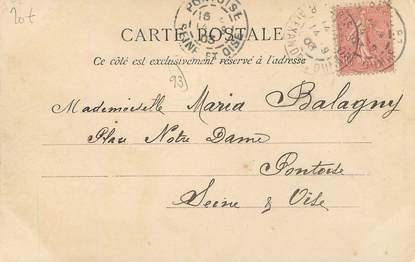 20t
PONTOISE
SEINE ET OISE
15
CARTE POSTALE
Ce côté est exclusivement réservé à l'adresse
93
Mademoiselle Maria Balagny
Place Notre Dame
Pontoise
Seine & Oise